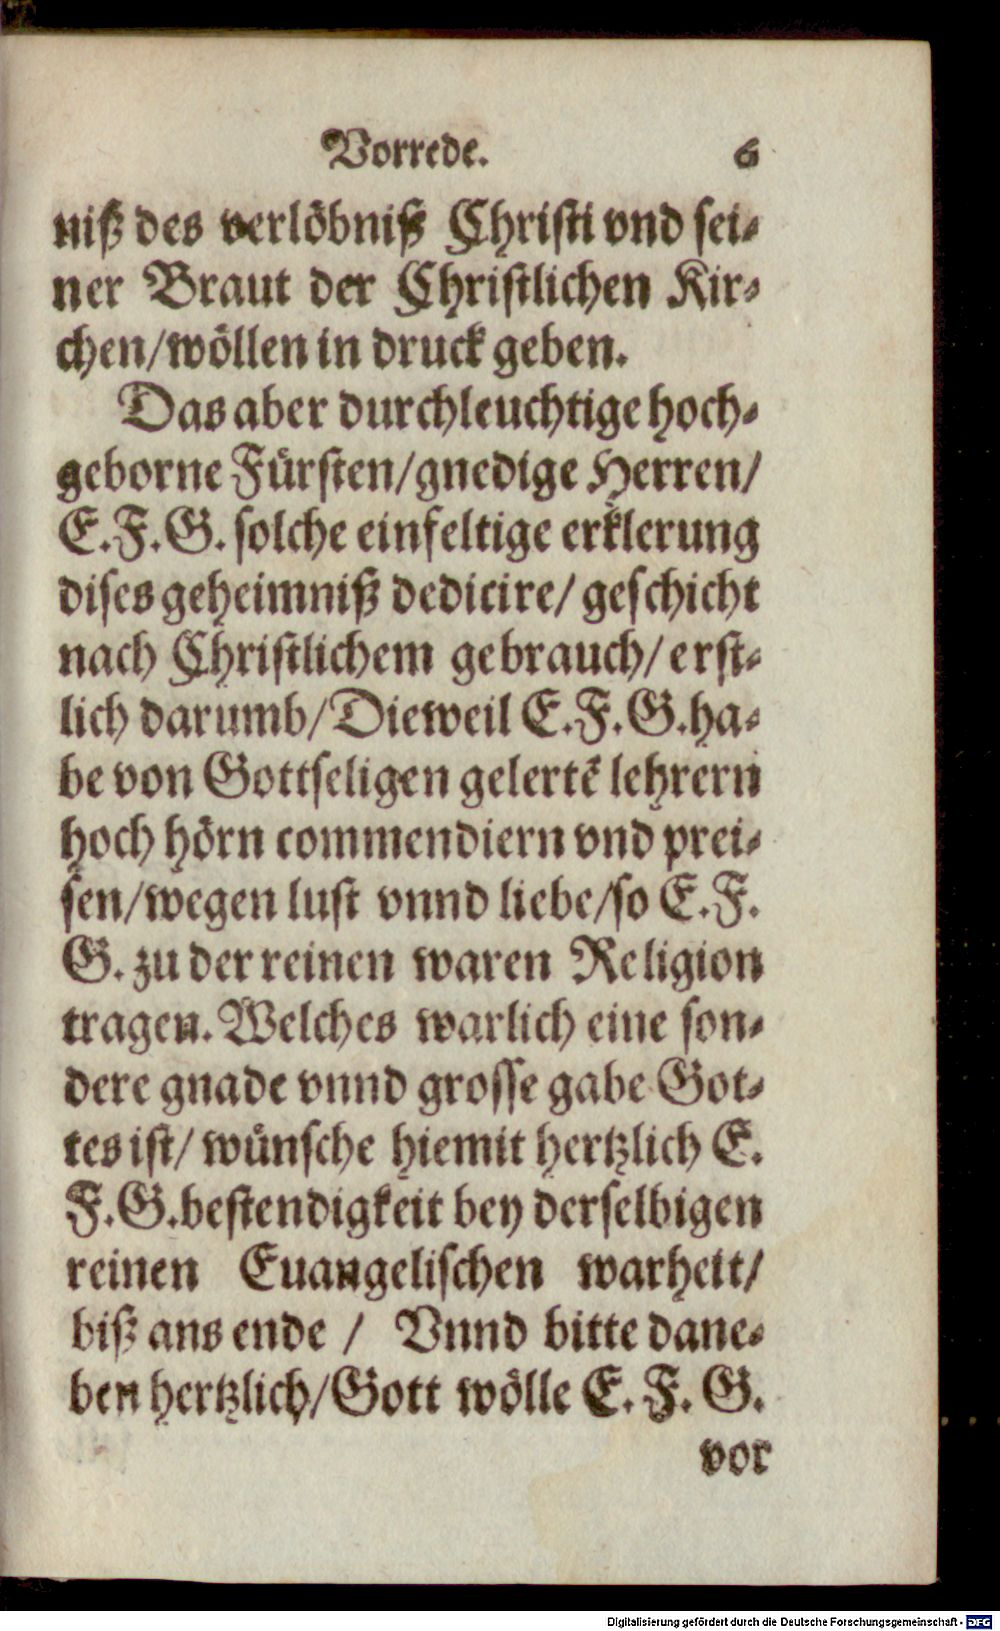 Vorrede. 6
niß des verlöbniß Christi vnd sei-
ner Braut der Christlichen Kir-
chen/wöllen in druck geben.
Das aber durchleuchtige hoch-
geborne Fürsten/gnedige Herren/
E.F.G. solche einfeltige erklerung
dises geheimniß dedicire/ geschicht
nach Christlichem gebrauch/ erst-
lich darumb/Dieweil E.F.G.ha-
be von Gottseligen gelertē lehrern
hoch hörn commendiern vnd prei-
sen/wegen lust vnnd liebe/so E.F.
G. zu der reinen waren Religion
tragen. Welches warlich eine son-
dere gnade vnnd grosse gabe Got-
tes ist/ wünsche hiemit hertzlich E.
F.G.bestendigkeit bey derselbigen
reinen Euangelischen warheit/
biß ans ende / Vnnd bitte dane-
ben hertzlich/Gott wölle E. F. G.
vor
Digitalisierung gefördert durch die Deutsche Forschungsgemeinschaft - DFG